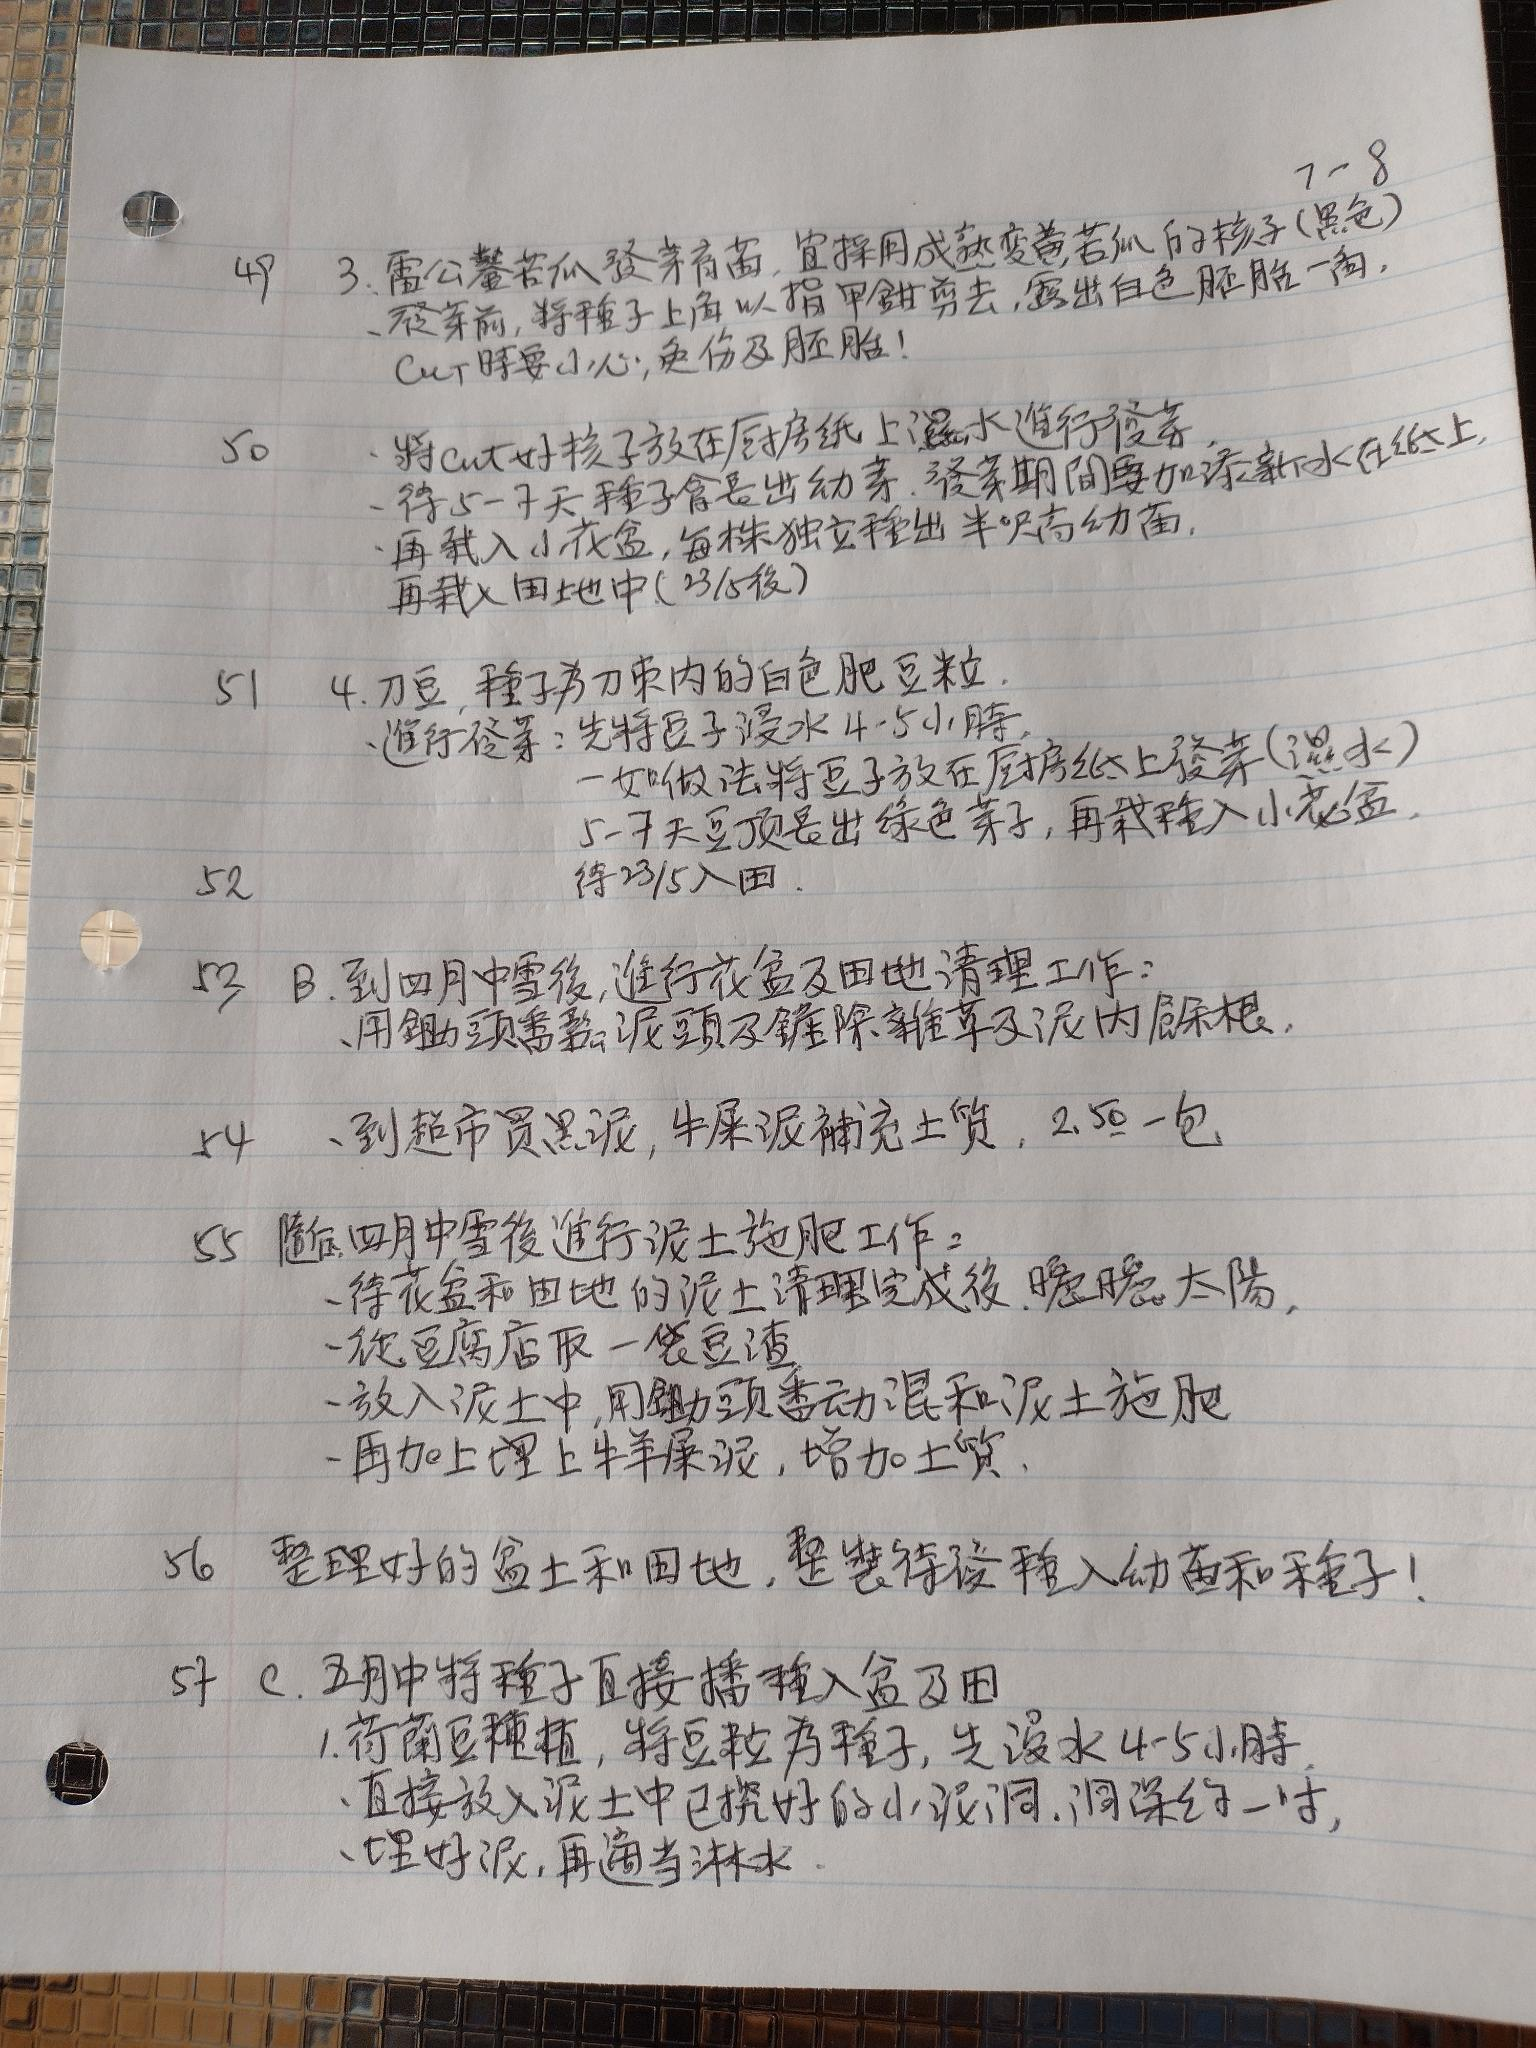 7-8
49 3. 雷公鑿苦瓜發芽育苗, 宜採用成熟变黄苦瓜的核子(黑色)
、發芽前, 將種子上角以指甲鉗剪去, 露出白色胚胎一角.
CUT時要小心, 免伤及胚胎!
50 、將cut好核子放在厨房纸上濕水進行發芽.
、待5-7天種子會長出幼芽. 發芽期間要加添新水在纸上.
、再栽入小花盆, 每株独立種出半呎高幼苗.
再栽入田地中(23/5後)
51 4. 刀豆, 種子为刀束内的白色肥豆粒.
、進行發芽: 先將豆子浸水4-5小時.
一如做法將豆子放在厨房纸上發芽(濕水)
5-7天豆顶長出綠色芽子, 再栽種入小花盆.
52 待23/5入田.
53 B. 到四月中雪後, 進行花盆及田地清理工作:
、用鋤頭番鬆泥頭及鏟除雜草及泥内餘根.
54 、到超市買黑泥, 牛屎泥補充土質, 2.50一包
55 隨后四月中雪後進行泥土施肥工作:
、待花盆和田地的泥土清理完成後. 曬曬太陽,
、從豆腐店取一袋豆渣
、放入泥土中, 用鋤頭番动混和泥土施肥
、再加上埋上牛羊屎泥, 增加土質.
56 整理好的盆土和田地, 整装待發種入幼苗和種子!
57 C. 五月中將種子直接播種入盆及田
1. 荷蘭豆種植, 將豆粒为種子, 先浸水4-5小時.
、直接放入泥土中已挖好的小泥洞. 洞深约一吋,
、埋好泥, 再適当淋水.